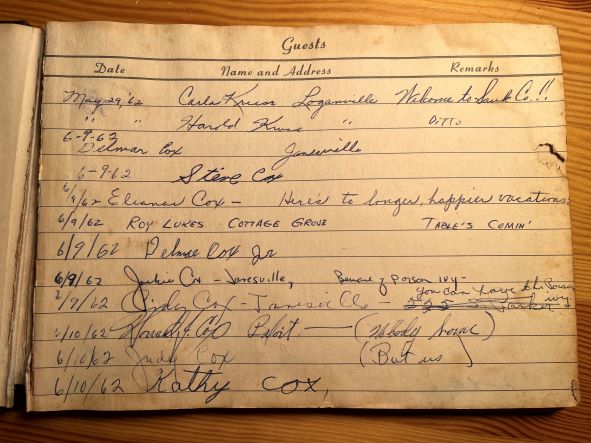 Guests
Date Name and Address Remarks
May 29, '62 Carla Kruse Loganville Welcome to Sauk Co.!!
" " Harold Kruse " DITTO
6-9-62
Delmar Cox Janesville
6-9-62 Steve Cox
6/9/62 Eleanor Cox — Here's to longer, happier vacations.
6/9/62 ROY LUKES COTTAGE GROVE TABLE'S COMIN'
6/9/62 Delmar Cox Jr
6/9/62 Cox - Janesville, Beware of poison ivy -
6/9/62 Cox - Janesville - you can have the Poison ivy
6/10/62 Cox — (Nobody home)
6/10/62 Judy Cox (But us)
6/10/62 Kathy Cox,